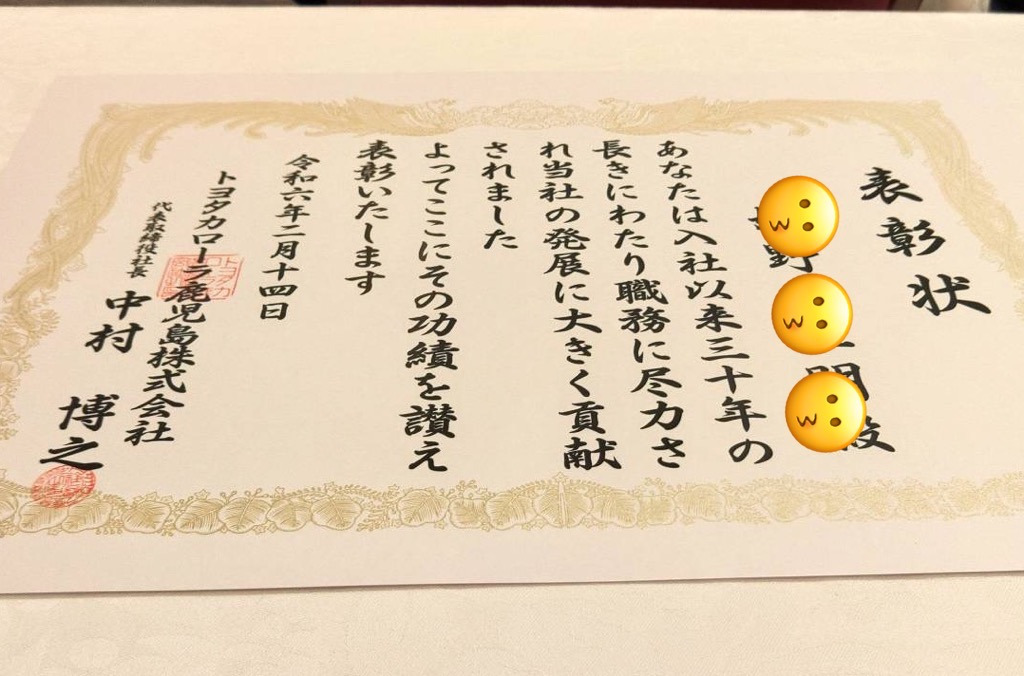 表彰状
野 明殿
あなたは入社以来三十年の
長きにわたり職務に尽力さ
れ当社の発展に大きく貢献
されました
よってここにその功績を讃え
表彰いたします
令和六年二月十四日
トヨタカローラ鹿児島株式会社
代表取締役社長 中村 博之